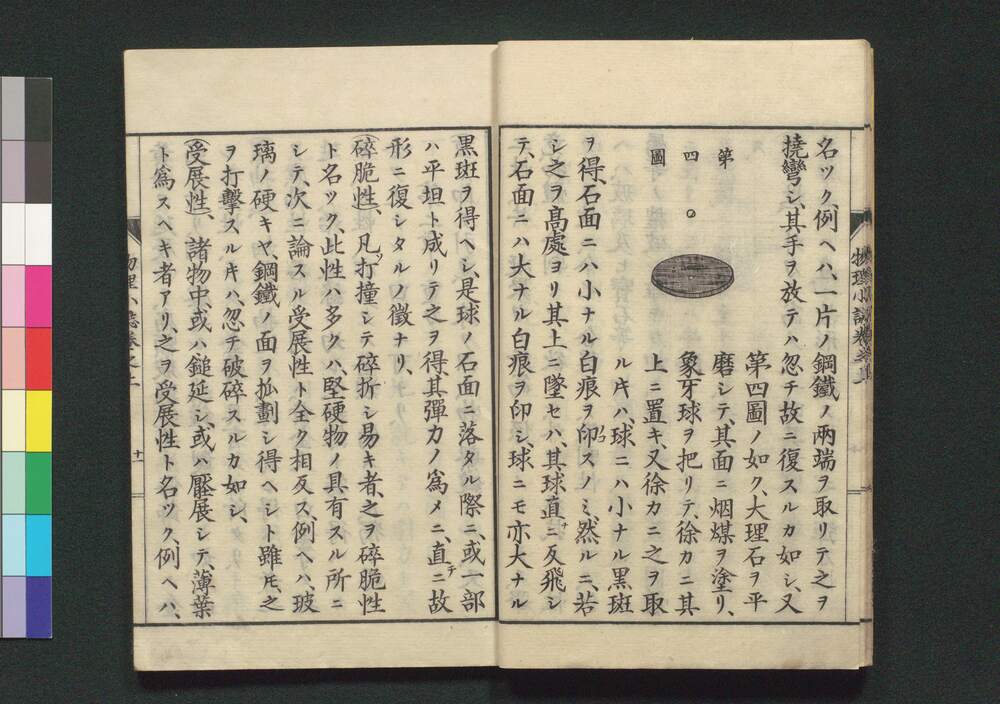 名ツク、例ヘハ、一片ノ鋼鐵ノ兩端ヲ取リテ之ヲ
撓彎シ、其手ヲ放テハ忽チ故ニ復スルカ如シ、又
第四圖
第四圖ノ如ク、大理石ヲ平
磨シテ、其面ニ烟煤ヲ塗リ、
象牙球ヲ把リテ、徐カニ其
上ニ置キ又徐カニ之ヲ取
ルキハ、球ニハ小ナル黒斑
ヲ得、石面ニハ小ナル白痕ヲ印スノミ、然ルニ、若
シ之ヲ高處ヨリ其上ニ墜セハ、其球直ニ反飛シ
テ、石面ニハ大ナル白痕ヲ印シ、球ニモ亦大ナル
黒斑ヲ得ヘシ、是球ノ石面ニ落タル際ニ、或一部
ハ平坦ト成リテ之ヲ得、其彈力ノ爲メニ、直ニ故
形ニ復シタルノ徴ナリ、
(碎脆性)凡ソ打撞シテ碎折シ易キ者、之ヲ碎脆性
ト名ツク、此性ハ多クハ、堅硬物ノ具有スル所ニ
シテ、次ニ論スル受展性ト全ク相反ス、例ヘハ、玻
璃ノ硬キヤ、鋼鐵ノ面ヲ劃シ得ヘシト雖モ、之
ヲ打擊スルキハ、忽チ破碎スルカ如シ、
(受展性)諸物中、或ハ鎚延シ、或ハ壓展シテ、薄葉
ト爲スヘキ者アリ、之ヲ受展性ト名ツク、例ヘハ、
物理小誌卷之二
十一